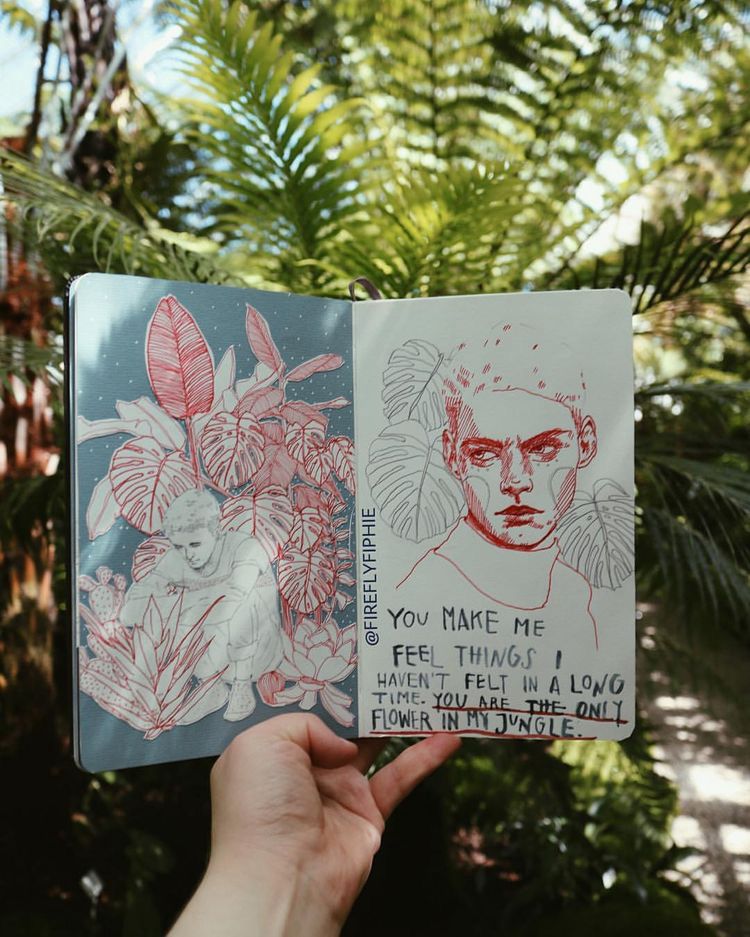 @FIREFLYFIPHIE
YOU MAKE ME
FEEL THINGS I
HAVEN'T FELT IN A LONG
TIME. YOU ARE THE ONLY
FLOWER IN MY JUNGLE.